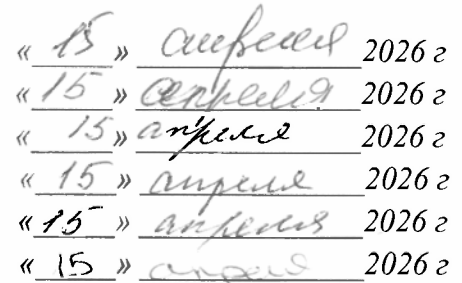 « 15 » апреля 2026 г
« 15 » апреля 2026 г
« 15 » апреля 2026 г
« 15 » апреля 2026 г
« 15 » апреля 2026 г
« 15 » апреля 2026 г